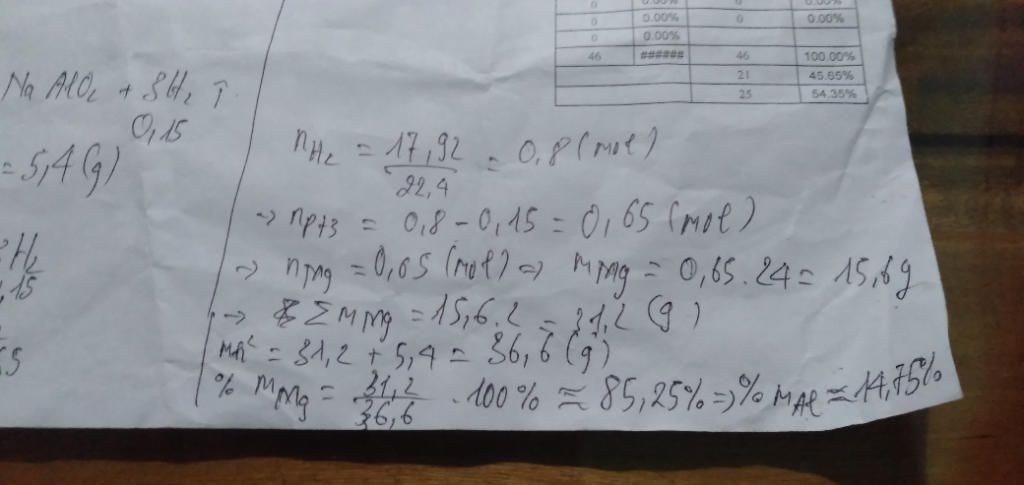 0 0.00% 0 0.00%
0 0.00% 0 0.00%
0 0.00%
46 ###### 46 100.00%
21 45.65%
25 54.35%
NaAlO₂ + 3H₂ ↑
0,15
= 5,4 (g)
3H₂
,15
nH₂ = 17,92 / 22,4 = 0,8 (mol)
→ npt3 = 0,8 - 0,15 = 0,65 (mol)
→ nMg = 0,65 (mol) ⇒ mMg = 0,65 . 24 = 15,6g
→ Σ mMg = 15,6 . 2 = 31,2 (g)
= 31,2 + 5,4 = 36,6 (g)
% mMg = 31,2 / 36,6 . 100% ≈ 85,25% ⇒ % mAl ≈ 14,75%